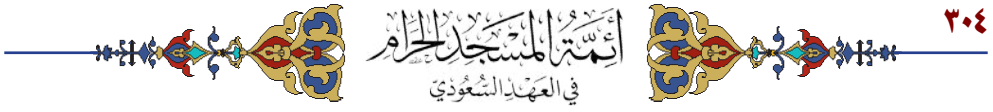 ٣٠٤
أئمة المسجد الحرام
في العهد السعودي